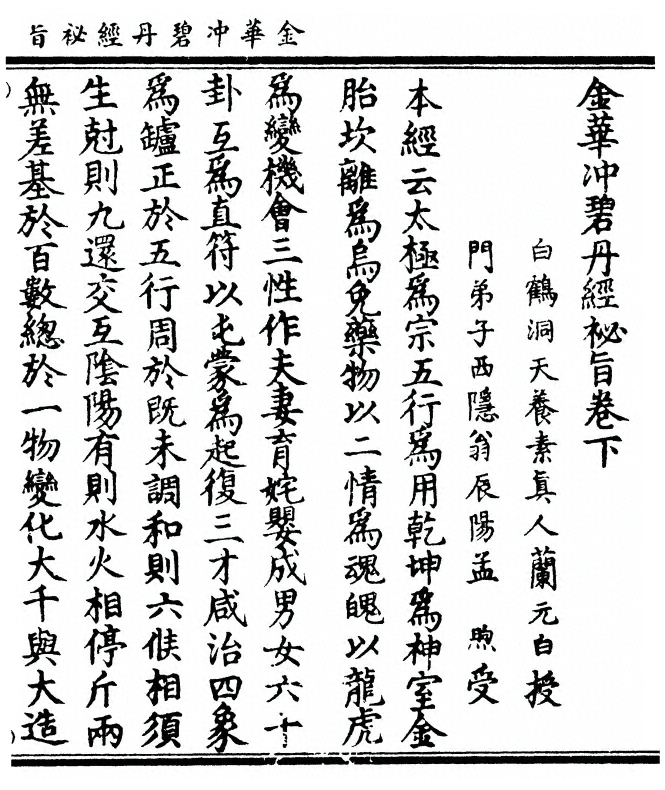 金華冲碧丹經祕旨
金華冲碧丹經祕旨卷下
白鶴洞天養素真人蘭元白授
門弟子西隱翁辰陽孟　煦受
本經云太極爲宗五行爲用乾坤爲神室金
胎坎離爲烏兔藥物以二情爲魂魄以龍虎
爲變機會三性作夫妻育姹嬰成男女六十
卦互爲直符以屯蒙爲起復三才咸治四象
爲鑪正於五行周於既未調和則六候相須
生尅則九還交互陰陽有則水火相停斤兩
無差基於百數總於一物變化大千與大造